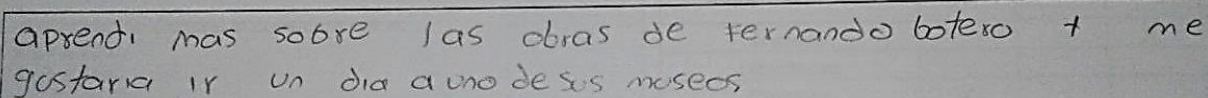 aprendi mas sobre las obras de fernando botero + me
gustaria ir un dia a uno de sus museos